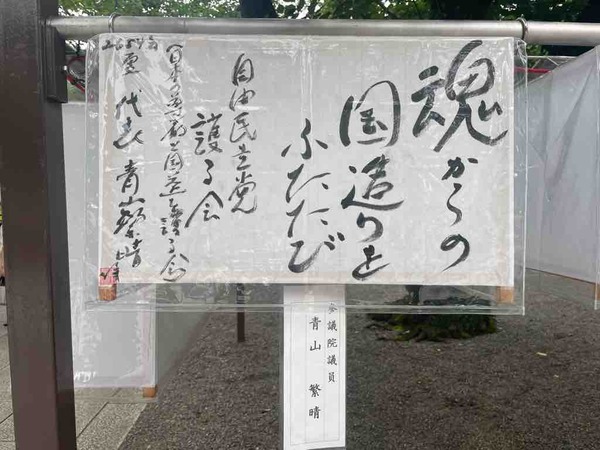 魂からの
国造りを
ふたたび
自由民主党
護る会
(日本の尊厳と国益を護る会)
代表 青山繁晴
参議院議員
青山 繁晴